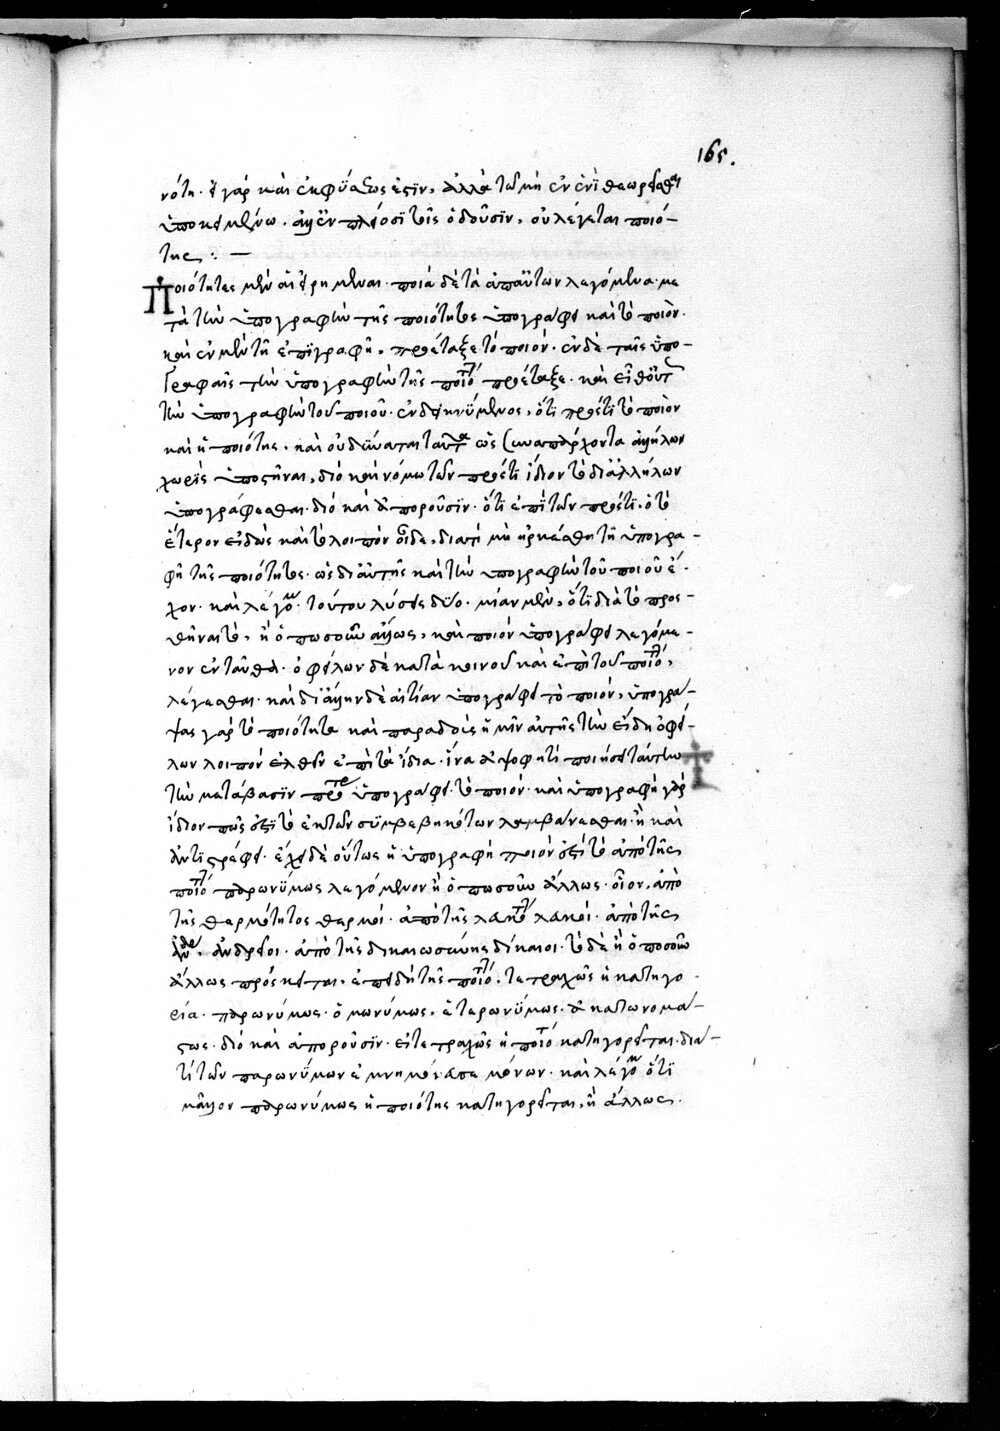 165.
νότη. εἰ γὰρ καὶ ἐκ φύσεώς ἐστιν, ἀλλὰ τῶ μὴ ἐν ἑνὶ θεωρεῖσθαι
ὑποκειμένω. ἀλλ' ἐν πλείοσι τοῖς ὁδοῦσιν, οὐ λέγεται ποιό-
της : —
Ποιότητες μὲν αἱ εἰρημέναι. ποιὰ δὲ τὰ ἀπ' αὐτῶν λεγόμενα. με
τὰ τὴν ὑπογραφὴν τῆς ποιότητος ὑπογράφει καὶ τὸ ποιόν.
καὶ ἐν μὲν τῆ ἐπιγραφῆ, προέταξε τὸ ποιόν. ἐν δὲ ταῖς ὑπο-
γραφαῖς τὴν ὑπογραφὴν τῆς ποιότ προέταξε. καὶ εἶθ' οὕτ
τὴν ὑπογραφὴν τοῦ ποιοῦ. ἐνδεικνύμενος, ὅτι πρός τι τὸ ποιὸν
καὶ ἡ ποιότης. καὶ οὐ δύναται ταῦτα ὡς συνυπάρχοντα ἀλλήλων
χωρὶς ὑποστῆναι, διὸ καὶ νόμω τῶν πρός τι ἴδιον τὸ δι' ἀλλήλων
ὑπογράφεσθαι. διὸ καὶ ἀποροῦσιν. ὅτι ἐπὶ τῶν πρός τι, ὁ τὸ
ἕτερον εἰδὼς καὶ τὸ λοιπὸν οἶδε, διατί μὴ ἠρκέσθη τῆ ὑπογρα-
φῆ τῆς ποιότητος. ὡς δι' αὐτῆς καὶ τὴν ὑπογραφὴν τοῦ ποιοῦ ἔ-
χον. καὶ λέγομ. τούτου λύσεις δύο. μίαν μὲν, ὅτι διὰ τὸ προσ-
θῆναι τὸ, ἢ ὁπωσοῦν ἄλλως, καὶ ποιὸν ὑπογράφει λεγόμε-
νον ἐνταῦθα. ὀφείλων δὲ κατὰ κοινοῦ καὶ ἐπὶ τοῦ ποιότ,
λέγεσθαι. καὶ δι' ἄλλην δὲ αἰτίαν ὑπογράφει τὸ ποιόν, ὑπογρά-
ψας γὰρ τὸ ποιότητα καὶ παραδοὺς ἡμῖν αὐτῆς τὰ εἴδη ὀφεί-
λων λοιπὸν ἐλθεῖν ἐπὶ τὰ ἴδια. ἵνα ἀψοφητὶ ποιήσει ταύτην
τὴν κατάβασιν προτε ὑπογράφει τὸ ποιόν. καὶ ὑπογραφὴ γὰρ
ἴδιον πῶς ἐστὶ τὸ ἐκ τῶν συμβεβηκότων λαμβάνεσθαι. ἢ καὶ
ἀντιστρέφει. ἔχει δὲ οὕτως ἡ ὑπογραφὴ ποιὸν ἐστὶ τὸ ἀπὸ τῆς
ποιότ παρωνύμως λεγόμενον ἢ ὁπωσοῦν ἄλλως. οἷον, ἀπὸ
τῆς θερμότητος θερμοί. ἀπὸ τῆς λευκότ λευκοί. ἀπὸ τῆς
ἀνδρ, ἀνδρεῖοι. ἀπὸ τῆς δικαιωσύνης δίκαιοι. τὸ δὲ ἢ ὁποσοῦν
ἄλλως πρόσκειται, ἐπειδὴ τῆς ποιότ. τετραχῶς ἡ κατηγο
ρία. παρωνύμως. ὁμωνύμως, ἑτερωνύμως. ἀκατωνομα-
στως. διὸ καὶ ἀποροῦσιν. εἰ τετραχῶς ἡ ποιότ κατηγορεῖται. δια-
τί τῶν παρωνύμων ἐμνημόνευσε μόνων. καὶ λέγομ ὅτι
μᾶλλον παρωνύμως ἡ ποιότης κατηγορεῖται, ἢ ἄλλως.